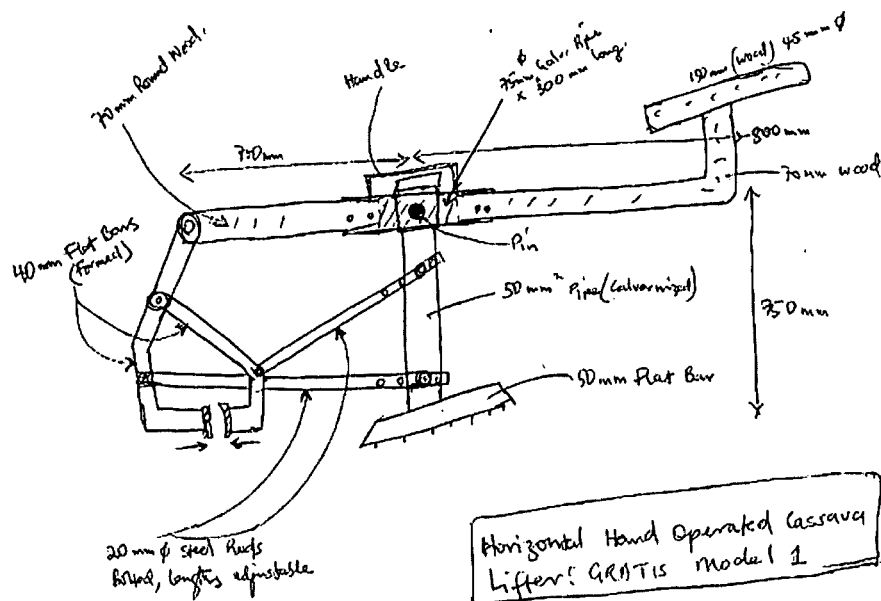 70mm Round Wood.
Handle
75mm ϕ Galv. Pipe
x 300 mm long.
150mm (wood) 45mm ϕ
800mm
70mm wood
40mm Flat Bars
(Formed)
Pin
50mm Pipe (Galvanized)
750mm
50mm Flat Bar
20mm ϕ Steel Rods
lengths adjustable
Horizontal Hand Operated Cassava
Lifter: GRATIS Model 1